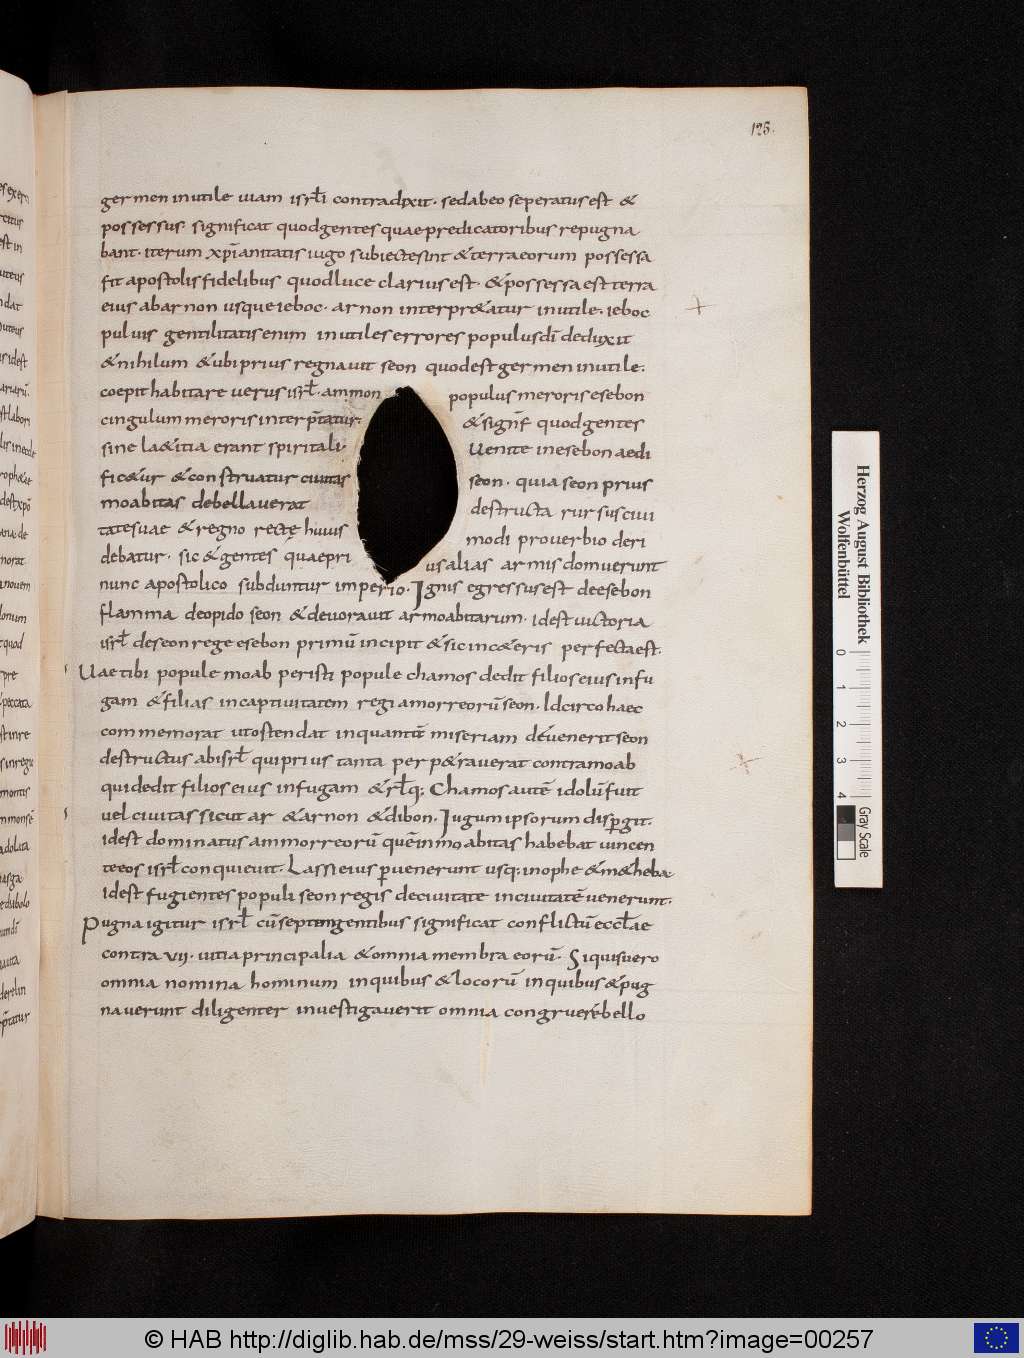 125.
germen inutile uiam isrł̄i contradixit. sed abeo seperatus est &
possessus. significat quod gentes quae predicatoribus repugna
bant. iterum xp̄ianitatis iugo subiecte sint & terra eorum possessa
fit apostolis fidelibus quod luce clarius est. & possessa est terra
eius abar non usque ieboc. arnon interpr&atur inutile. ieboc
puluis gentilitatis enim inutiles errores populus dī deduxit
& nihilum & ubi prius regnauit seon quod est germen inutile.
coepit habitare uerus isrł̄. ammon populus meroris esebon
cingulum meroris interp̄tatur. & signf̄ quod gentes
sine la&itia erant spiritali. Uenite in esebon aedi
fic&ur & construatur ciuitas seon. quia seon prius
moabitas debellauerat destructa rursus ciui
tate suae & regno recte huius modi prouerbio deri
debatur. sic & gentes quae pri us alias armis domuerunt
nunc apostolico subduntur imperio. Ignis egressus est de esebon
flamma de opido seon & deuorauit ar moabitarum. id est uictoria
isrł̄ de seon rege esebon primū incipit & sic in c&eris perfecta est.
Uae tibi popule moab peristi popule chamos dedit filios eius in fu
gam & filias in captiuitatem regi amorreorū seon. Idcirco haec
commemorat ut ostendat in quantū miseriam deuenerit seon
destructus ab isrł̄ qui prius tanta perp&rauerat contra moab
qui dedit filios eius in fugam & rł̄q; Chamos autē idolū fuit
uel ciuitas sicut ar & arnon & dibon. Iugum ipsorum disp̄git.
id est dominatus ammorreorū quē in moabitas habebat uincen
te eos isrł̄ conquieuit. Lassi eius p̄uenerunt usq; in ophe & m&heba
id est fugientes populi seon regis de ciuitate in ciuitatē uenerunt.
Pugna igitur isrł̄ cū septem gentibus significat conflictū eccłae
contra VII. uitia principalia & omnia membra eorū. Si quis uero
omnia nomina hominum in quibus & locorū in quibus & pug
nauerunt diligenter inuestigauerit omnia congruere bello
Herzog August Bibliothek
Wolfenbüttel
0 1 2 3 4
Gray Scale
© HAB http://diglib.hab.de/mss/29-weiss/start.htm?image=00257